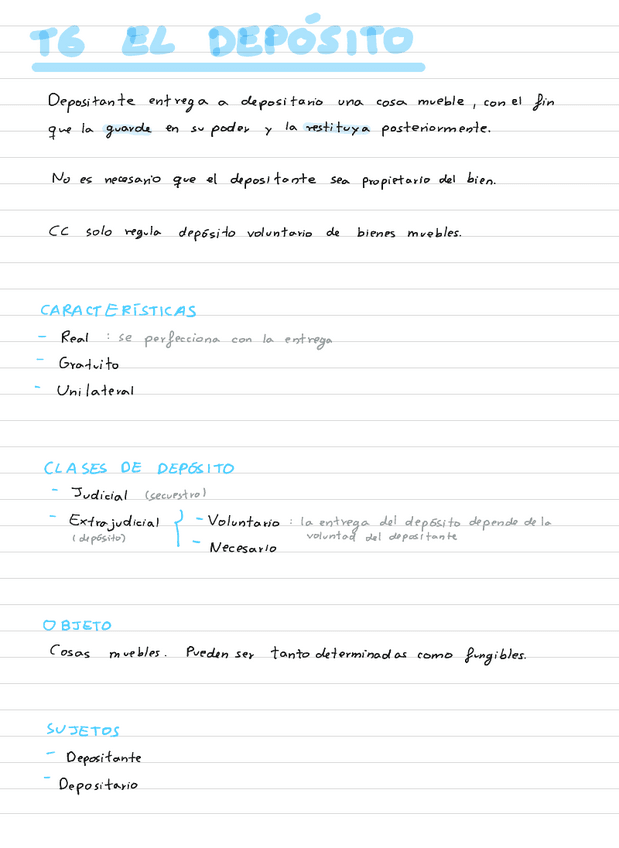 T6 EL DEPÓSITO
Depositante entrega a depositario una cosa mueble, con el fin
que la guarde en su poder y la restituya posteriormente.
No es necesario que el depositante sea propietario del bien.
CC solo regula depósito voluntario de bienes muebles.
CARACTERÍSTICAS
- Real : se perfecciona con la entrega
- Gratuito
- Unilateral
CLASES DE DEPÓSITO
- Judicial (secuestro)
- Extrajudicial { - Voluntario : la entrega del depósito depende de la
(depósito) voluntad del depositante
- Necesario
OBJETO
Cosas muebles. Pueden ser tanto determinadas como fungibles.
SUJETOS
- Depositante
- Depositario